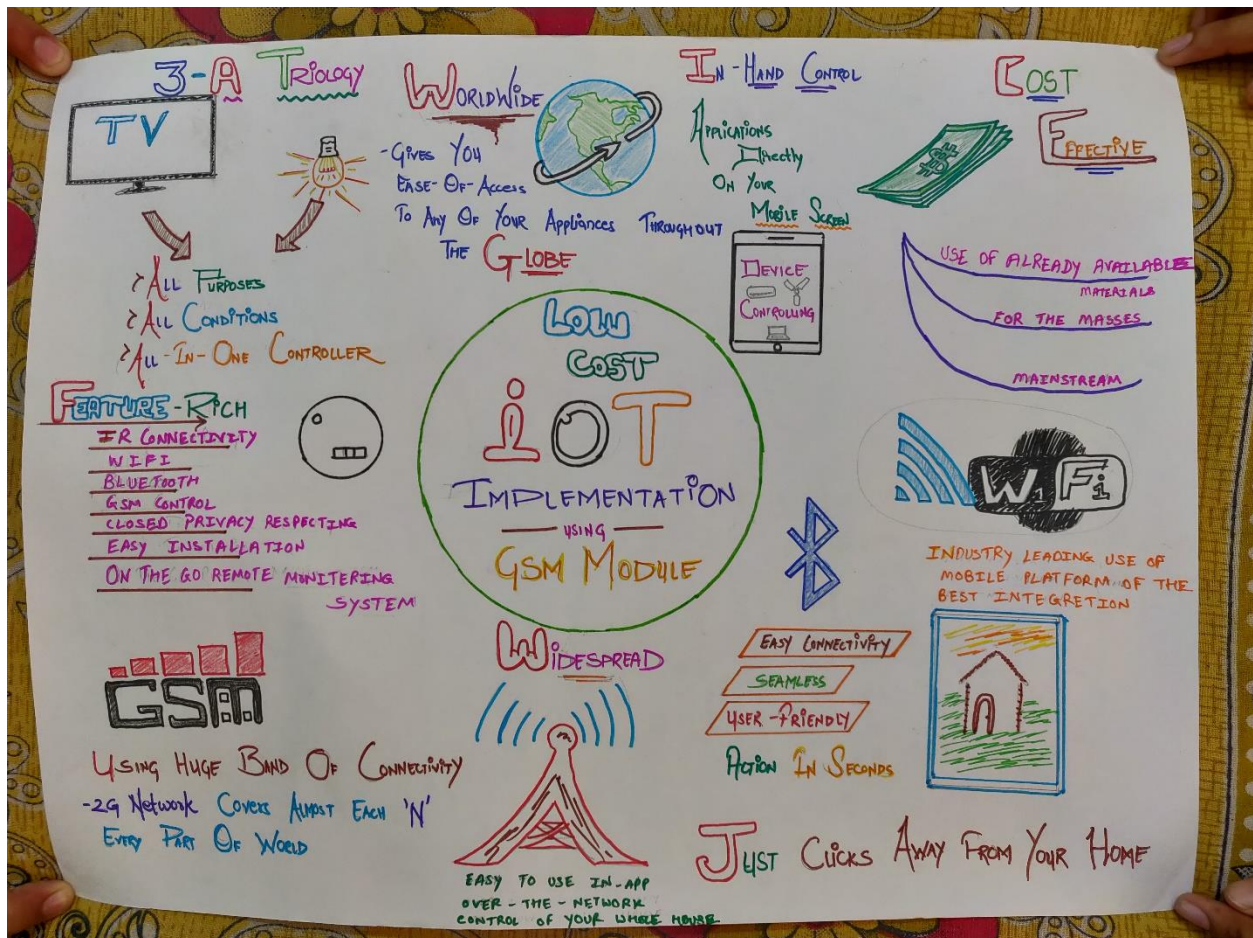 3-A TRIOLOGY
TV
ALL PURPOSES
ALL CONDITIONS
ALL-IN-ONE CONTROLLER
WORLDWIDE
-GIVES YOU
EASE-OF-ACCESS
TO ANY OF YOUR APPLIANCES THROUGHOUT
THE GLOBE
IN-HAND CONTROL
APPLICATIONS
DIRECTLY
ON YOUR
MOBILE SCREEN
DEVICE
CONTROLLING
COST
EFFECTIVE
$
USE OF ALREADY AVAILABLE
MATERIALS
FOR THE MASSES
MAINSTREAM
FEATURE-RICH
IR CONNECTIVITY
WIFI
BLUETOOTH
GSM CONTROL
CLOSED PRIVACY RESPECTING
EASY INSTALLATION
ON THE GO REMOTE MONITERING
SYSTEM
LOW
COST
iOT
IMPLEMENTATION
USING
GSM MODULE
WiFi
INDUSTRY LEADING USE OF
MOBILE PLATFORM OF THE
BEST INTEGRETION
GSM
USING HUGE BAND OF CONNECTIVITY
-2G NETWORK COVERS ALMOST EACH 'N'
EVERY PART OF WORLD
WIDESPREAD
EASY TO USE IN-APP
OVER-THE-NETWORK
CONTROL OF YOUR WHOLE HOUSE
EASY CONNECTIVITY
SEAMLESS
USER-FRIENDLY
ACTION IN SECONDS
JUST CLICKS AWAY FROM YOUR HOME